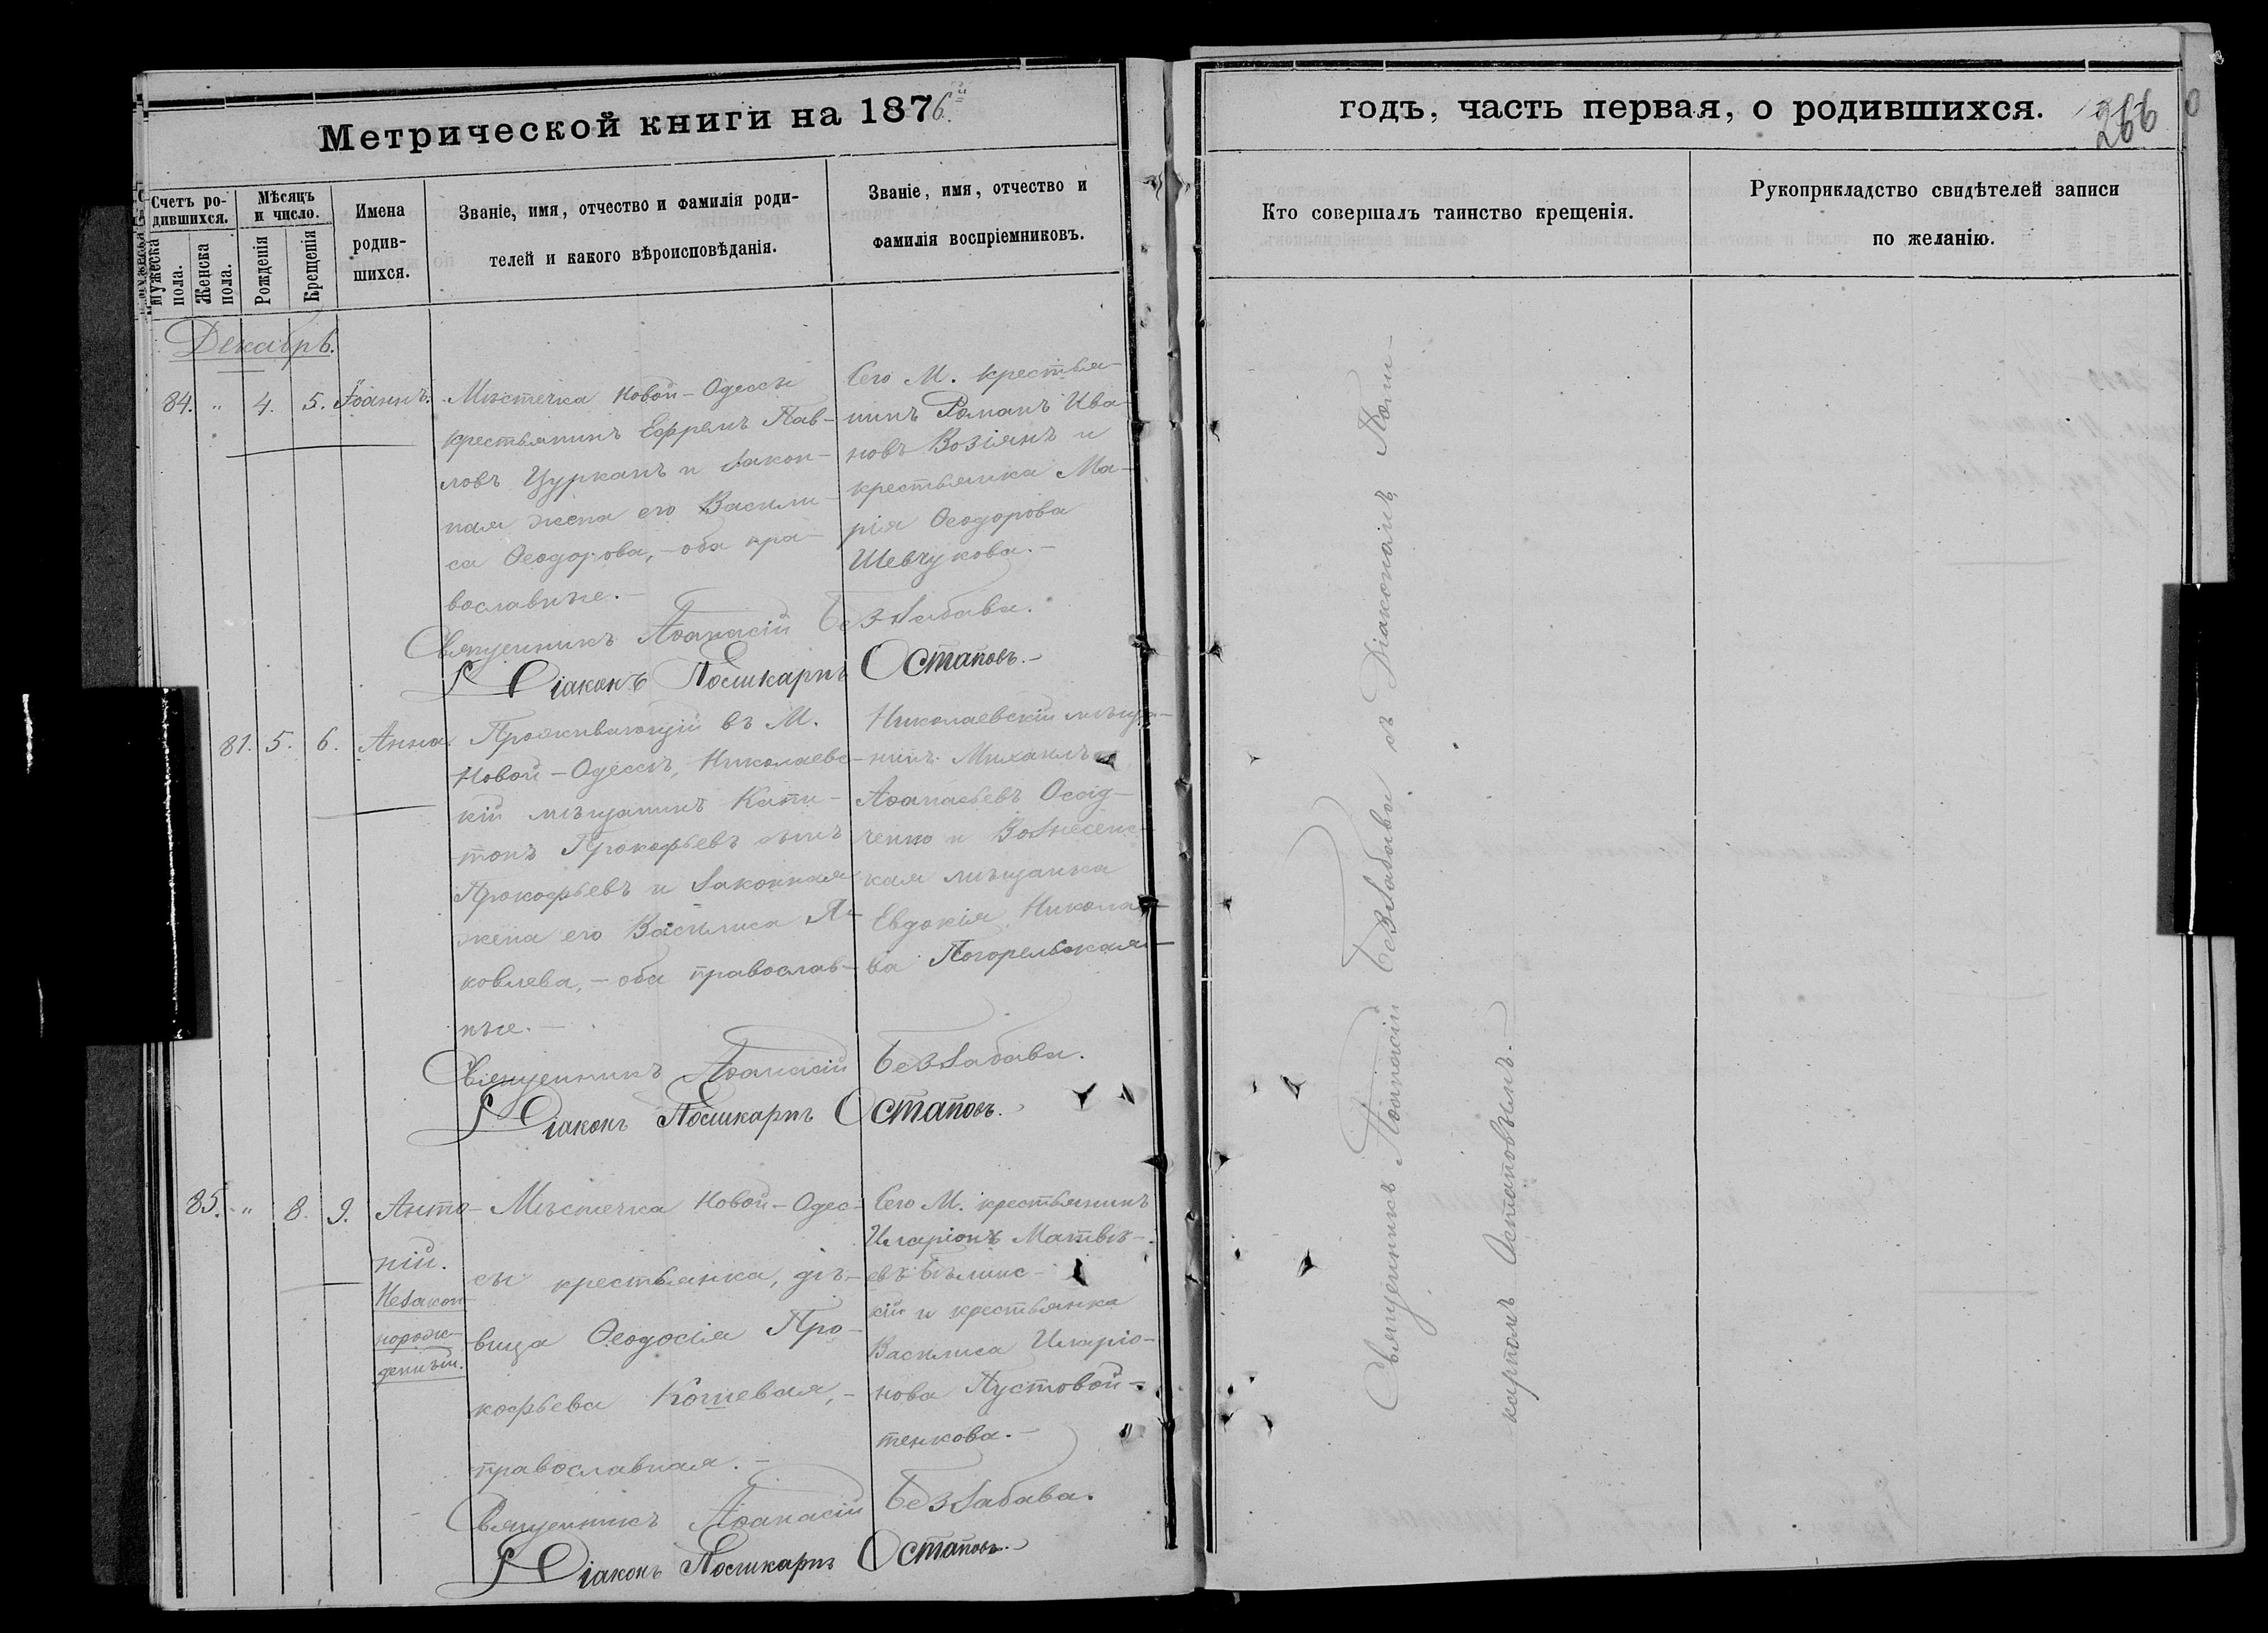 Метрической книги на 1876й
годъ, часть первая, о родившихся.
266
Счетъ ро-
дившихся.
Мужеска
пола.
Женска
пола.
Мѣсяцъ
и число.
Рожденія
Крещенія
Имена
родив-
шихся.
Званіе, имя, отчество и фамилія роди-
телей и какого вѣроисповѣданія.
Званіе, имя, отчество и
фамилія воспріемниковъ.
Кто совершалъ таинство крещенія.
Рукоприкладство свидѣтелей записи
по желанію.
Декабрь.
84. " 4. 5. Іоаннъ.
Мѣстечка Новой-Одессы
крестьянинъ Ефремъ Пав-
ловъ Цурканъ и закон-
ная жена его Васили-
са Ѳеодорова, - оба пра-
вославные. -
Сего М. крестья-
нинъ Романъ Ива-
новъ Возіянъ и
крестьянка Ма-
рія Ѳеодорова
Шевчукова. -
Священникъ Аѳанасій Беззабава.
Діаконъ Поликарпъ Остаповъ. -
81. 5. 6. Анна.
Проживающій въ М.
Новой-Одессѣ, Николаевс-
кій мѣщанинъ Капи-
тонъ Прокофьевъ сынъ
Прокофьевъ и законная
жена его Василиса Я-
ковлева, - оба православ-
ные. -
Николаевскій мѣща-
нинъ Михаилъ
Аѳанасьевъ
ченко и Вознесенс-
кая мѣщанка
Евдокія Никола-
ва Погорельская -
Священникъ Аѳанасій Беззабава.
Діаконъ Поликарпъ Остаповъ. -
85. " 8. 9. Анто-
ній.
Незакон-
норож-
денный.
Мѣстечка Новой-Одес-
сы крестьянка, дѣ-
вица Ѳеодосія Про-
кофьева Кошевая, -
православная. -
Сего М. крестьянинъ
Иларіонъ Матвѣ-
евъ Бѣлинс-
кій и крестьянка
Василиса Иларіо-
нова Пустовой-
тенкова. -
Священникъ Аѳанасій Беззабава.
Діаконъ Поликарпъ Остаповъ. -
Священникъ Аѳанасій Беззабава съ Діакономъ Поли-
карпомъ Остаповымъ. -